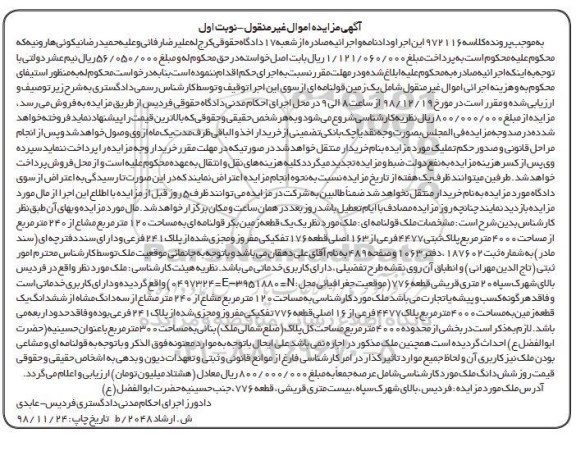 آگهی مزایده اموال غیر منقول - نوبت اول
به موجب پرونده کلاسه ۹۷۲۱۱۶ این اجرا و دادنامه و اجرائیه صادره از شعبه ۱۷ دادگاه حقوقی کرج له علیرضا رفائی و علیه حمیدرضا نیکوئی هارونیه که
محکوم علیه محکوم است به پرداخت مبلغ ۱/۱۲۱/۰۶۰/۰۰۰ ریال بابت اصل خواسته در حق محکوم له و مبلغ ۵۶/۰۵۰/۰۰۰ ریال نیم عشر دولتی با
توجه به اینکه اجرائیه صادره به محکوم علیه ابلاغ شده و در مهلت مقرر نسبت به اجرای حکم اقدام ننموده است بنا به درخواست محکوم له به منظور استیفای
محکوم به و هزینه اجرائی اموال غیر منقول شامل یک زمین قولنامه ای از سوی این اجرا توقیف و توسط کارشناس رسمی دادگستری به شرح زیر توصیف و
ارزیابی شده و مقرر است در مورخ ۹۸/۱۲/۱۹ از ساعت ۸ الی ۹ در محل اجرای احکام مدنی دادگاه حقوقی فردیس از طریق مزایده به فروش می رسد،
مزایده از مبلغ ۸۰۰/۰۰۰/۰۰۰ ریال نظریه کارشناسی شروع می شود و به هر شخص حقیقی و حقوقی که بالاترین قیمت را پیشنهاد نماید فروخته خواهد
شد ده درصد وجه مزایده فی المجلس بصورت وجه نقد یا چک بانکی تضمینی از خریدار اخذ و الباقی ظرف مدت یک ماه از وی وصول خواهد شد و پس از انجام
مراحل قانونی و صدور حکم تملیک مورد مزایده به نام خریدار منتقل خواهد شد در صورتیکه در مهلت مقرر خریدار وجه مزایده را پرداخت ننماید سپرده
وی پس از کسر هزینه مزایده به نفع دولت ضبط و مزایده تجدید میگردد کلیه هزینه های نقل و انتقال به عهده محکوم علیه است و از محل فروش پرداخت
خواهد شد. طرفین میتوانند ظرف یک هفته از تاریخ مزایده نسبت به نحوه انجام مزایده اعتراض نمایند که در این صورت تا رسیدگی به اعتراض از سوی
دادگاه مورد مزایده به نام خریدار منتقل نخواهد شد ضمناً طالبین به شرکت در مزایده می توانند ظرف ۵ روز قبل از مزایده با اطلاع این اجرا از مال مورد
مزایده بازدید نمایند چنانچه روز مزایده مصادف با ایام تعطیل باشد روز بعد در همان ساعت و مکان برگزار خواهد شد. مال مورد مزایده و بهای آن طبق نظر
کارشناس بدین شرح است: مشخصات ملک قولنامه ای: ملک مورد نظر یک یک قطعه زمین بکر قولنامه ای به مساحت ۱۲۰ متر مربع مشاع از ۲۴۰ متر مربع
از مساحت ۴۰۰۰ متر مربع پلاک ثبتی ۴۴۷۷ فرعی از ۱۶۲ اصلی قطعه ۱۷۶ تفکیکی مفروز و مجزی شده از پلاک ۲۴۱ فرعی و دارای سند دفترچه ای (سند
مادر) به شماره ثبت ۱۸۷۶۰۲، دفتر ۱۰۶۲ و صفحه ۴۸۹ به نام آقای علی دهقان می باشد و با توجه به جانمائی موقعیت ملک توسط کارشناس محترم امور
ثبتی (تاج الدین مهرانی) و انطباق آن روی نقشه طرح تفضیلی، دارای کاربری خدماتی می باشد. نظریه هیئت کارشناسی: ملک مورد نظر واقع در فردیس
بالای شهرک سپاه ۲۰ متری قریشی قطعه ۷۷۶ (موقعیت جغرافیائی محل: N=۳۹۵۱۱۸۰ـ E=۰۴۹۷۳۲۴) واقع گردیده و دارای کاربری خدماتی است
و فاقد هر گونه کسب و پیشه یا تجارت می باشد ملک مورد کارشناسی به مساحت ۱۲۰ متر مربع مشاع از ۲۴۰ متر مشاع از سه دانگ مشاع از ششدانگ یک
قطعه زمین به مساحت ۴۰۰۰ متر مربع پلاک ۴۴۷۷ فرعی از ۱۶ اصلی قطعه ۷۷۶ تفکیکی مفروز و مجزی شده از پلاک ۲۴۱ فرعی بوده و فاقد حدود اربعه می
باشد. لازم به ذکر است در بخشی از محدوده ۴۰۰۰ متر مربع مساحت کل پلاک (ضلع شمالی ملک) بنائی به مساحت ۳۰۰ متر مربع با عنوان حسینیه (حضرت
ابوالفضل ع) احداث گردیده است همچنین ملک مذکور در اجاره نمی باشد علی ایحال با توجه به موارد معنونه فوق الذکر و با توجه به قولنامه ای و مشاعی
بودن ملک نیز کاربری آن و لحاظ جمیع موارد تاثیر گذار در امر کارشناسی فارغ از موانع قانونی و ثبتی و تعهدات دیون و بدهی به اشخاص حقیقی و حقوقی
قیمت روز شش دانگ ملک مورد کارشناسی شامل عرصه جمعاً به مبلغ ۸۰۰/۰۰۰/۰۰۰ ریال معادل (هشتاد میلیون تومان) ارزیابی و اعلام می گردد.
آدرس ملک مورد مزایده: فردیس، بالای شهرک سپاه، بیست متری قریشی، قطعه ۷۷۶، جنب حسینیه حضرت ابوالفضل (ع)
دادورز اجرای احکام مدنی دادگستری فردیس - عابدی
ش. ارشاد ۲۰۴۸/ط تاریخ چاپ: ۹۸/۱۱/۲۴